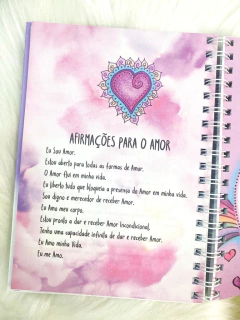 AFIRMAÇÕES PARA O AMOR
Eu Sou Amor.
Estou aberto para todas as formas de Amor.
O Amor flui em minha vida.
Eu liberto tudo que bloqueia a presença do Amor em minha vida.
Sou digno e merecedor de receber Amor.
Eu Amo meu corpo.
Estou pronto a dar e receber Amor Incondicional.
Tenho uma capacidade infinita de dar e receber Amor.
Eu Amo minha Vida.
Eu me Amo.